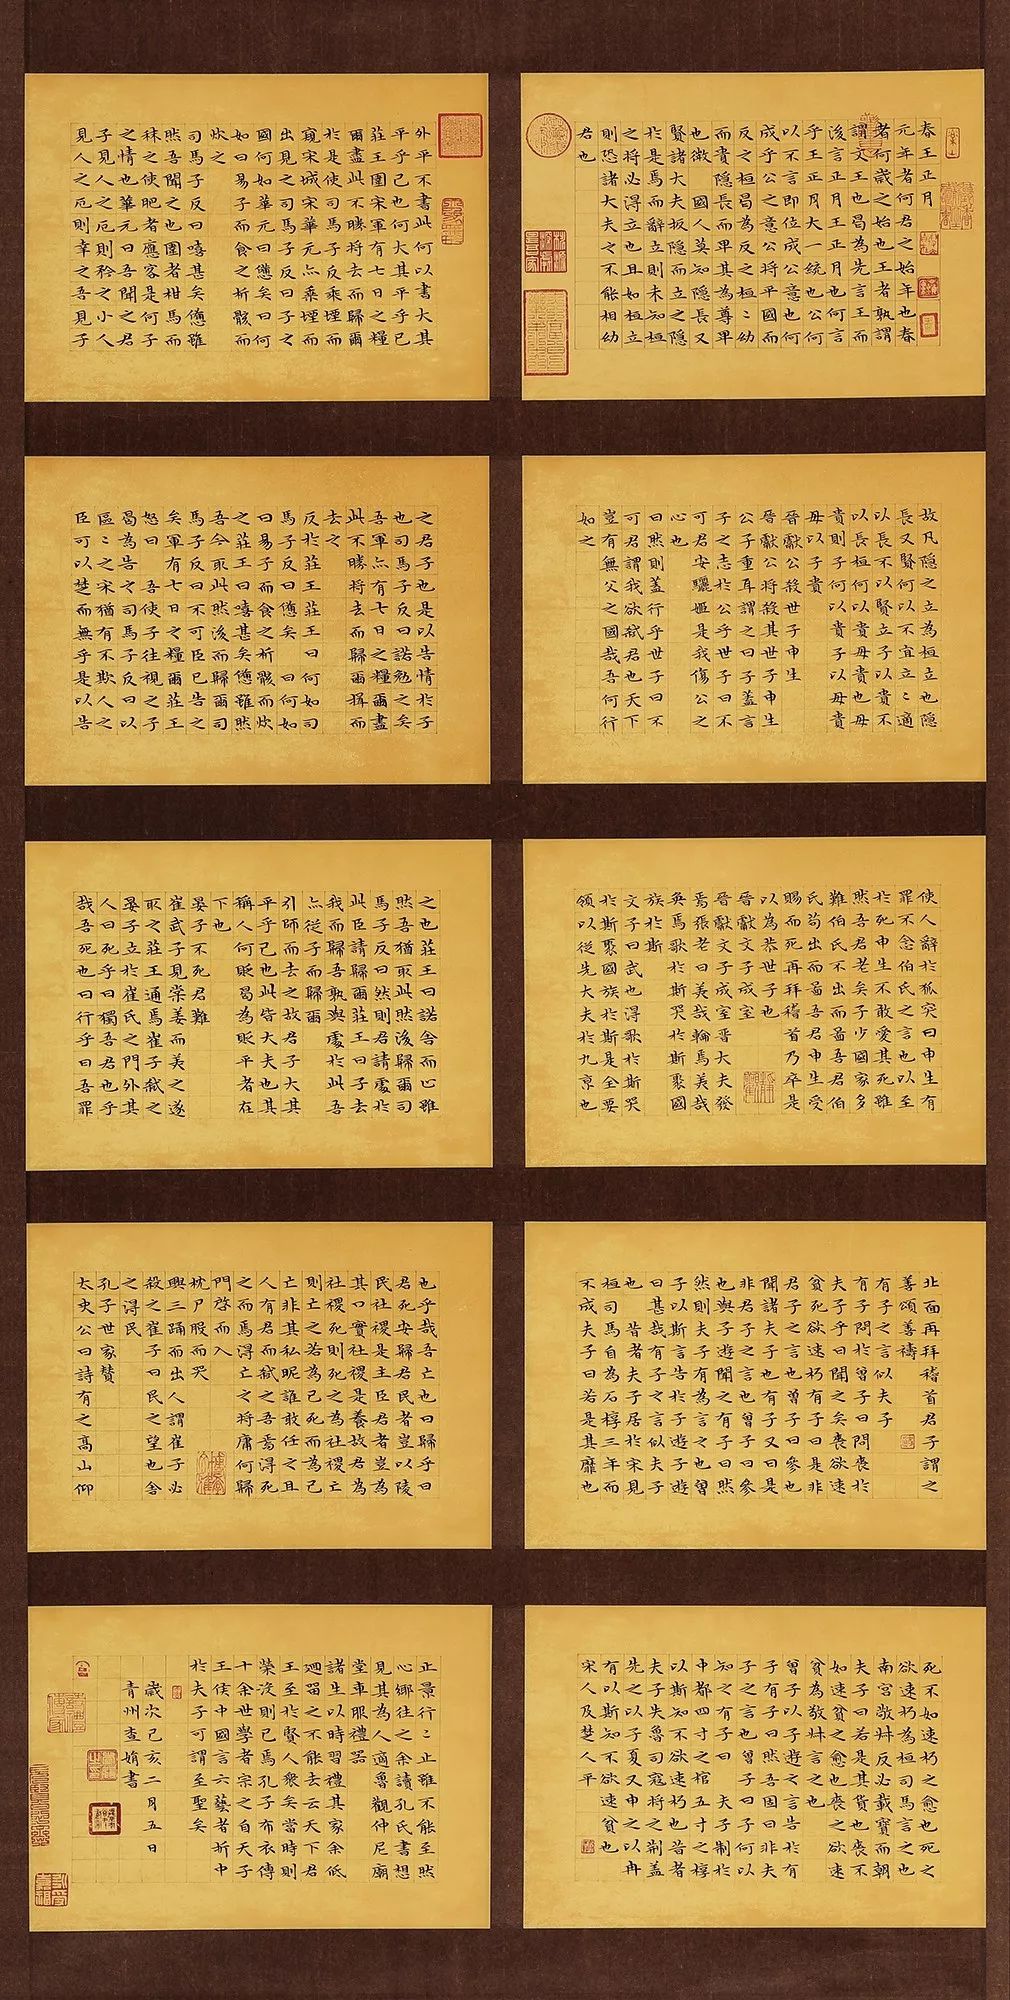 春王正月
元年者何君之始年也春
者何歲之始也王者孰謂
謂文王也曷為先言王而
後言正月王正月也何言
乎王正月大一統也公何
以不言即位成公意也何
成乎公之意公將平國而
反之桓曷為反之桓〻幼
而貴隐長而卑其為尊卑
也微 國人莫知隐長又
賢諸大夫扳隐而立之隐
於是焉而辭立則未知桓
之將必得立也且如桓立
則恐諸大夫之不能相幼
君也
故凡隐之立為桓立也隐
長又賢何以不宜立〻適
以長不以賢立子以貴不
以長桓何以貴母貴也母
貴則子何以貴子以母貴
母以子貴
晉獻公殺世子申生
晉獻公將殺其世子申生
公子重耳謂之曰子盖言
子之志於公乎世子曰不
可君安驪姬是我傷公之
心也
曰然則盖行乎世子曰不
可君謂我欲弑君也天下
豈有無父之國哉吾何行
如之
使人辭於狐突曰申生有
罪不念伯氏之言也以至
於死申生不敢愛其死雖
然吾君老矣子少國家多
難伯氏不出而圖吾君伯
氏苟出而圖吾君申生受
賜而死再拜稽首乃卒是
以為恭世子也
晉獻文子成室
晉獻文子成室晉大夫發
焉張老曰美哉輪焉美哉
奐焉歌於斯哭於斯聚國
族於斯
文子曰武也得歌於斯哭
於斯聚國族於斯是全要
領以從先大夫於九京也
北面再拜稽首君子謂之
善頌善禱
有子之言似夫子
有子問於曾子曰問喪於
夫子乎曰聞之矣喪欲速
貧死欲速朽有子曰是非
君子之言也曾子曰參也
聞諸夫子也有子又曰是
非君子之言也曾子曰參
也與子遊聞之有子曰然
然則夫子有為言之也曾
子以斯言告於子遊子遊
曰甚哉有子之言似夫子
也 昔者夫子居於宋見
桓司馬自為石椁三年而
不成夫子曰若是其靡也
死不如速朽之愈也死之
欲速朽為桓司馬言之也
南宮敬叔反必載寶而朝
夫子曰若是其貨也喪不
如速貧之愈也喪之欲速
貧為敬叔言之也
曾子以子遊之言告於有
子有子曰然吾固曰非夫
子之言也曾子曰子何以
知之有子曰 夫子制於
中都四寸之棺五寸之椁
以斯知不欲速朽也昔者
夫子失魯司寇將之荆盖
先之以子夏又申之以冉
有以斯知不欲速貧也
宋人及楚人平
外平不書此何以書大其
平乎己也何大其平乎己
莊王圍宋軍有七日之糧
爾盡此不勝將去而歸爾
於是使司馬子反乘堙而
窺宋城宋華元亦乘堙而
出見之司馬子反曰子之
國何如華元曰憊矣曰何
如曰易子而食之析骸而
炊之
司馬子反曰嘻甚矣憊雖
然吾聞之也圍者柑馬而
秣之使肥者應客是何子
之情也華元曰吾聞之君
子見人之厄則矜之小人
見人之厄則幸之吾見子
之君子也是以告情於子
也司馬子反曰諾勉之矣
吾軍亦有七日之糧爾盡
此不勝將去而歸爾揖而
去之
反於莊王莊王曰何如司
馬子反曰憊矣 曰何如
曰易子而食之析骸而炊
之莊王曰嘻甚矣憊雖然
吾今取此然後而歸爾司
馬子反曰不可臣已告之
矣軍有七日之糧爾莊王
怒曰 吾使子往視之子
曷為告之司馬子反曰以
區〻之宋猶有不欺人之
臣可以楚而無乎是以告
之也莊王曰諾舍而止雖
然吾猶取此然後歸爾司
馬子反曰然則君請處於
此臣請歸爾莊王曰子去
我而歸吾孰與處於此吾
亦從子而歸爾
引師而去之故君子大其
平乎己也此皆大夫也其
稱人何貶曷為貶平者在
下也
晏子不死君難
崔武子見棠姜而美之遂
取之莊王通焉崔子弑之
晏子立於崔氏之門外其
人曰死乎曰獨吾君也乎
哉吾死也曰行乎曰吾罪
也乎哉吾亡也曰歸乎曰
君死安歸君民者豈以陵
民社稷是主臣君者豈為
其口實社稷是養故君為
社稷死則死之為社稷亡
則亡之若為己死而為己
亡非其私昵誰敢任之且
人有君而弑之吾焉得死
之而焉得亡之將庸何歸
門啓而入
枕尸股而哭
興三踊而出人謂崔子必
殺之崔子曰民之望也舍
之得民
孔子世家贊
太史公曰詩有之高山仰
止景行〻止雖不能至然
心鄉往之余讀孔氏書想
見其為人適魯觀仲尼廟
堂車服禮器
諸生以時習禮其家余低
迴留之不能去云天下君
王至於賢人衆矣當時則
榮沒則已焉孔子布衣傳
十余世學者宗之自天子
王侯中國言六藝者折中
於夫子可謂至聖矣
歲次己亥二月五日
青州查娟書